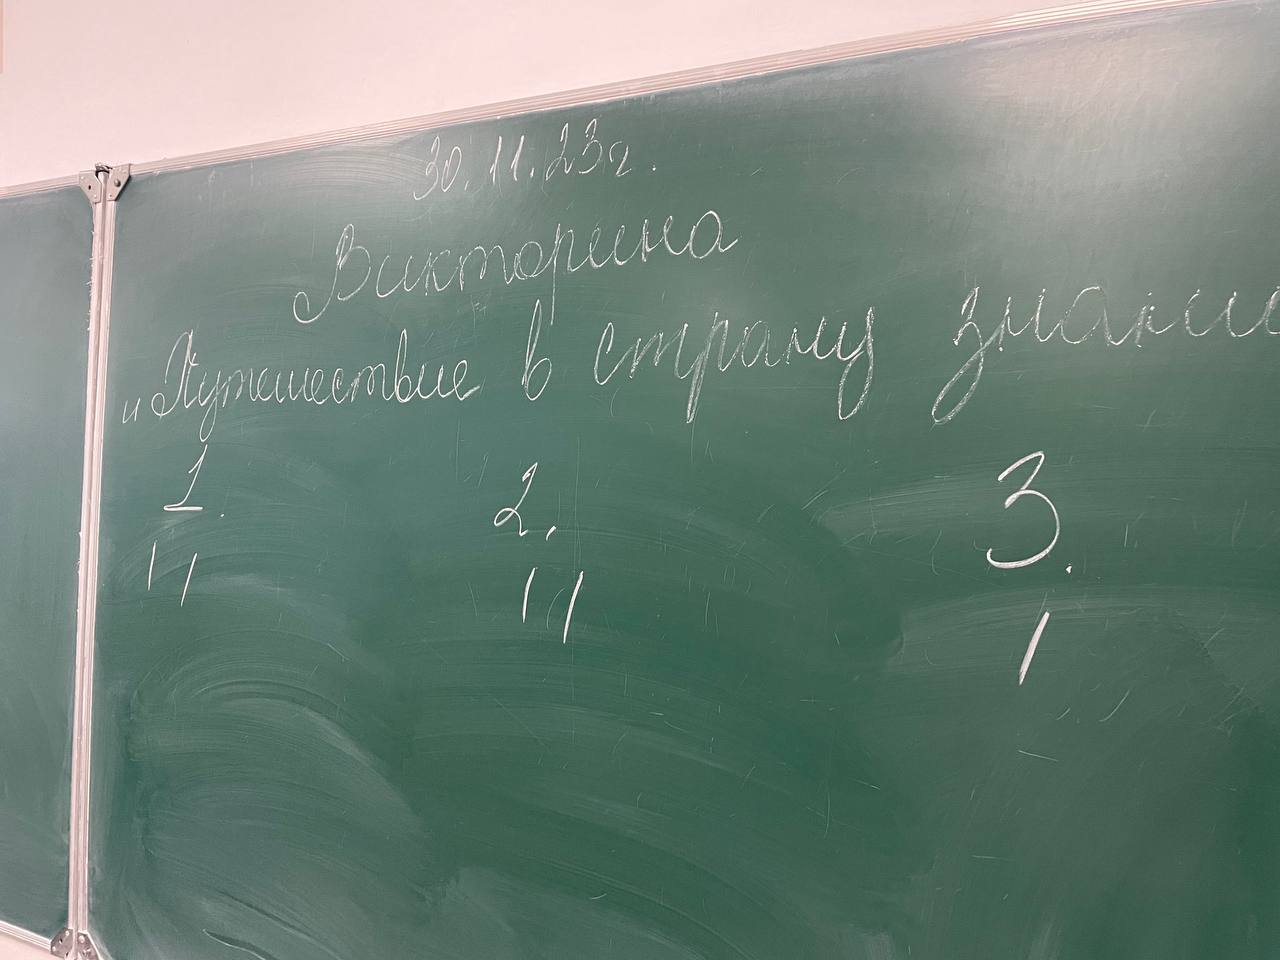 30.11.23г.
Викторина
"Путешествие в страну знани
1. 2. 3.
|| || |